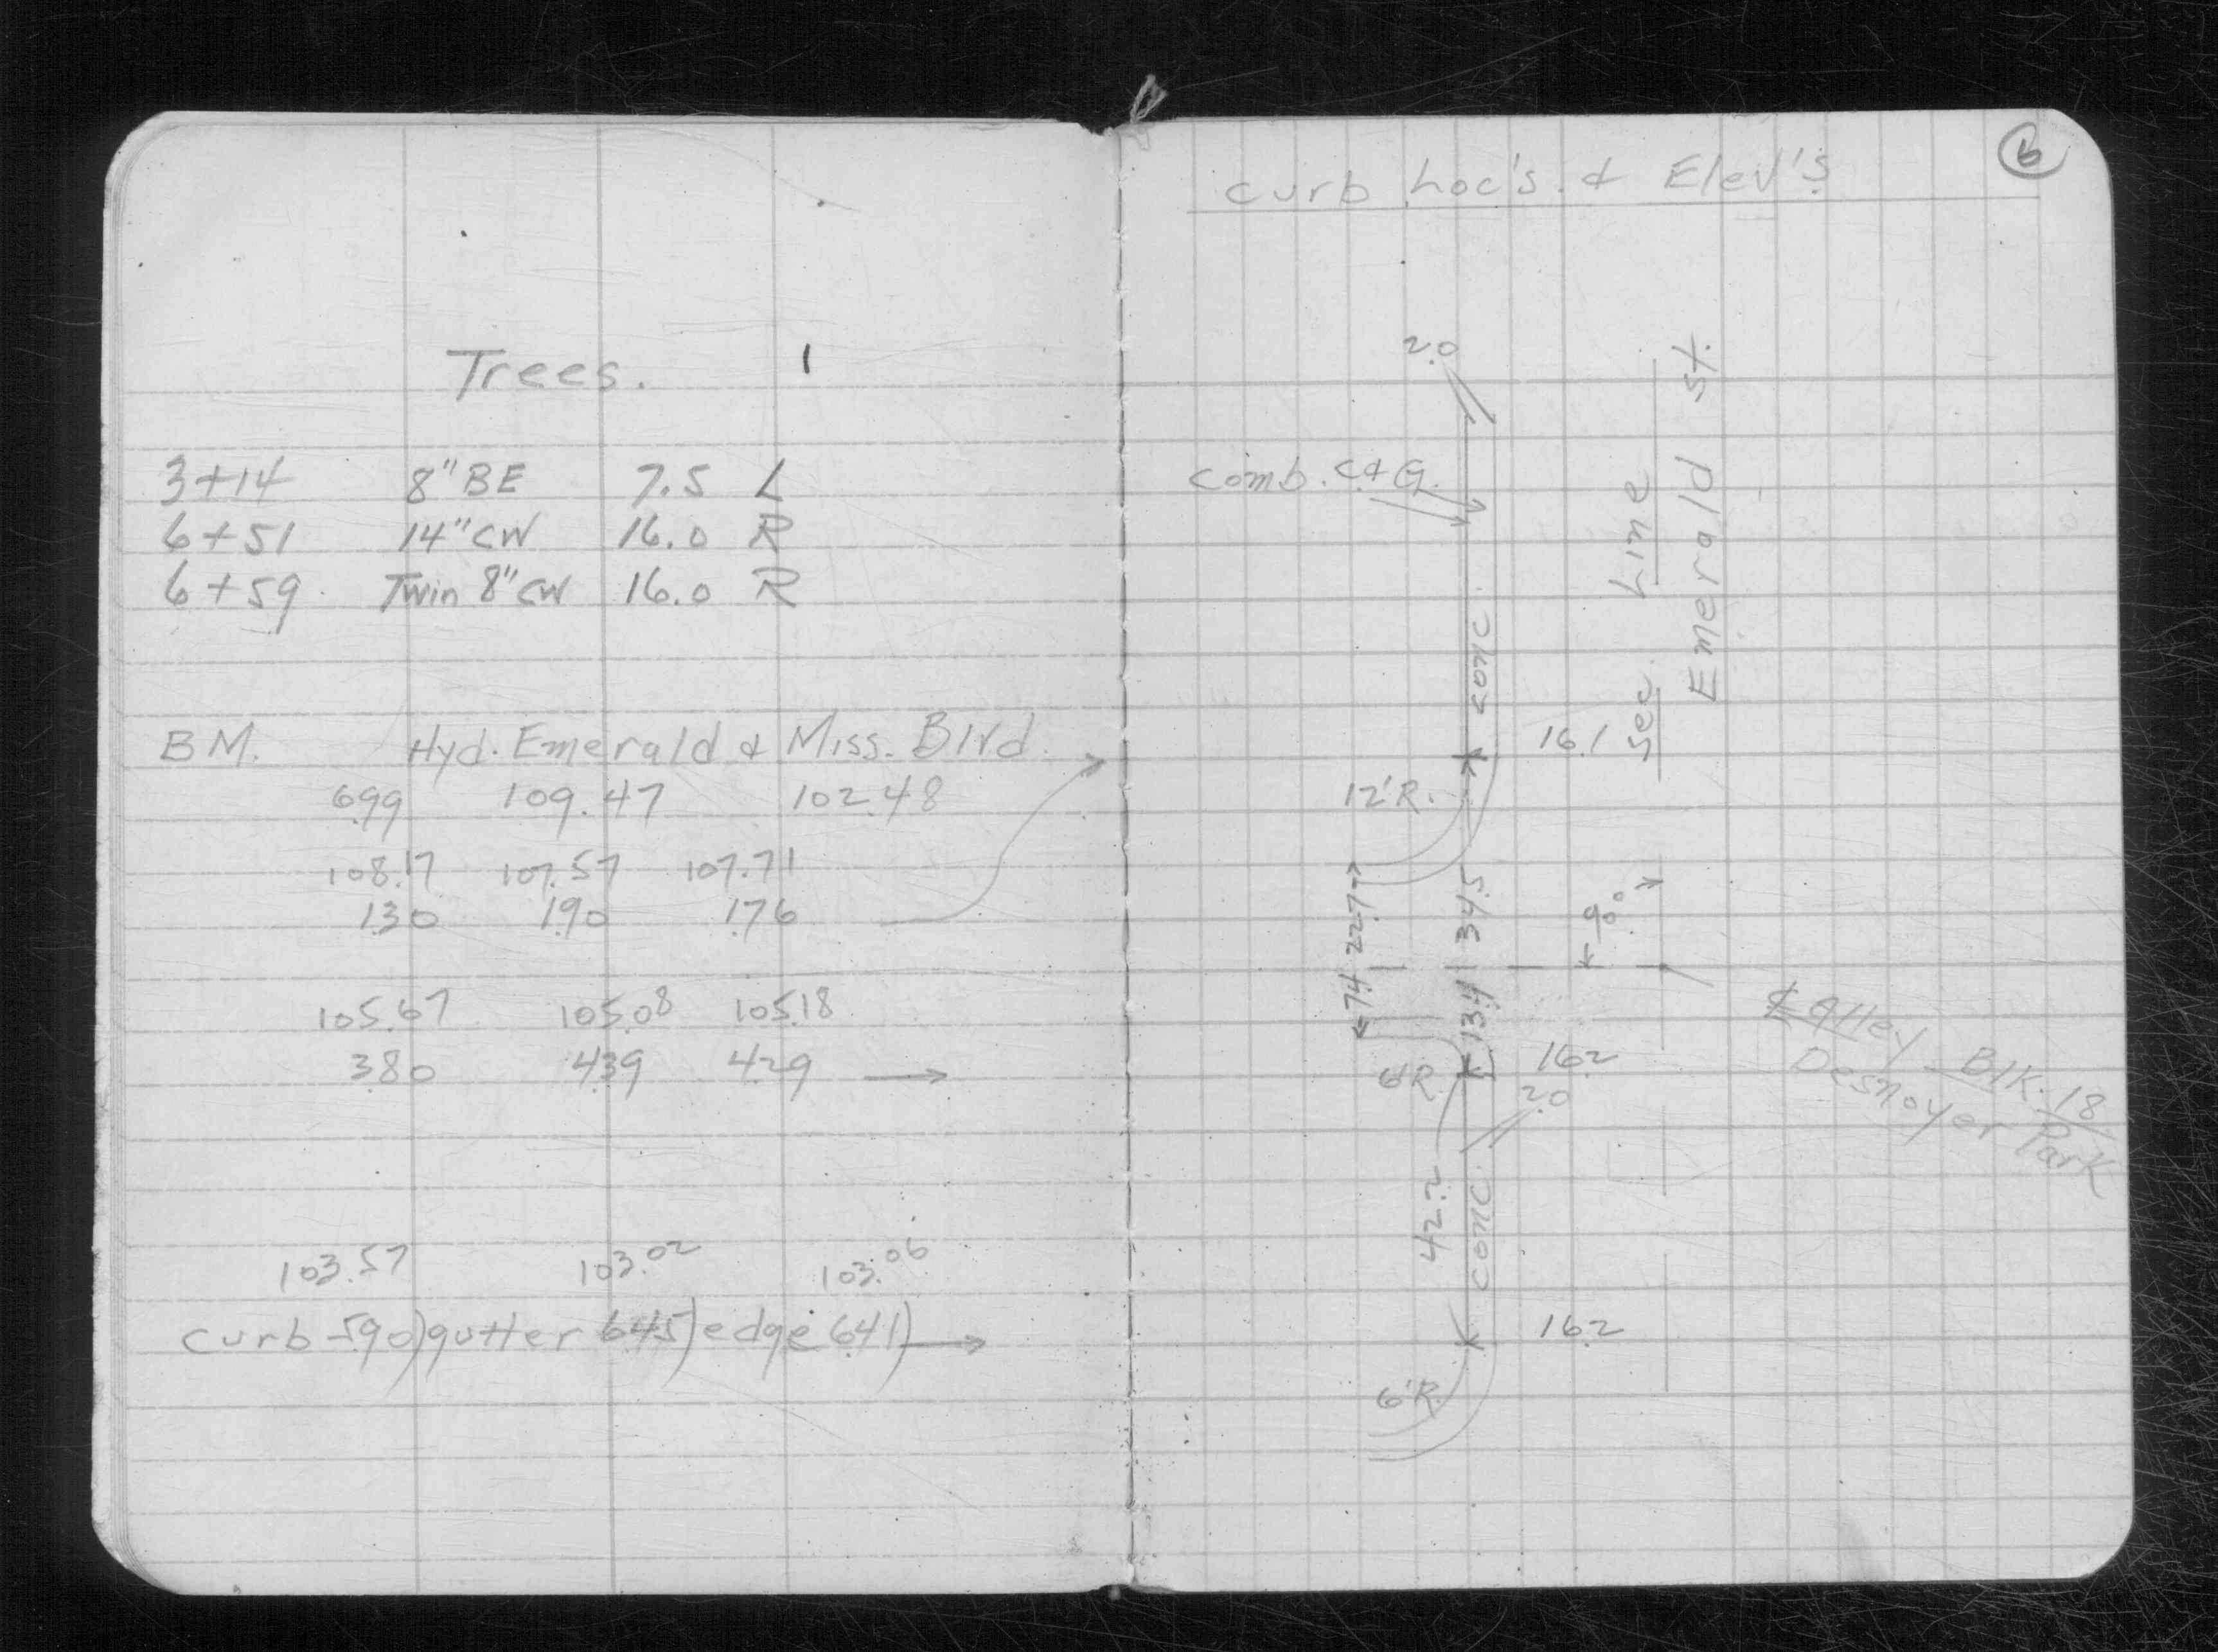 Trees.
3+14 8" BE 7.5 L
6+51 14" CW 16.0 R
6+59 Twin 8" CW 16.0 R
BM. Hyd. Emerald & Miss. Blvd.
6.99 109.47 102.48
108.17 107.57 107.71
1.30 1.90 1.76
105.67 105.08 105.18
3.80 4.39 4.29
103.57 103.02 103.06
curb 5.90) gutter 6.45) edge 6.41)
6
curb Loc's. & Elev's
2.0
comb. C.&G.
conc.
Sec. Line
Emerald St.
16.1
12'R.
22.7
34.5
90°
7.4
13.4
16.2
6'R.
2.0
℄ alley Blk. 18
Desnoyer Park
42.2
conc.
16.2
6'R.